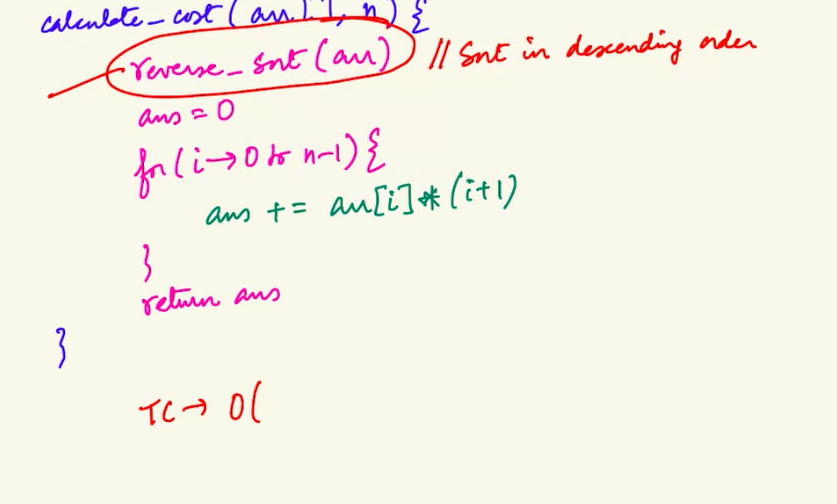 calculate_cost(arr[], n) {
reverse_sort(arr) // Sort in descending order
ans = 0
for(i→0 to n-1){
ans += arr[i]*(i+1)
}
return ans
}
TC → O(